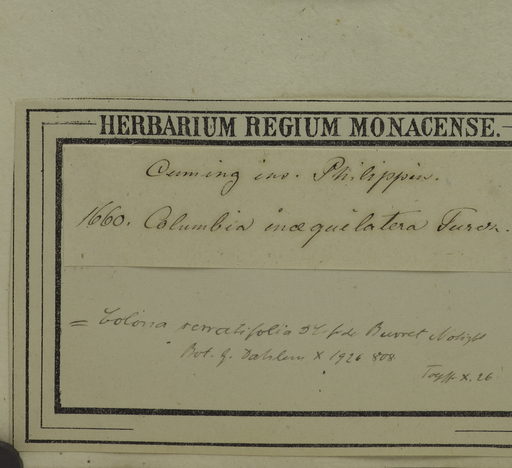 HERBARIUM REGIUM MONACENSE.
Cuming ins. Philippin.
1660. Columbia inæquilatera Turcz.
= Colona serratifolia fide Burret Notizbl
Bot. G. Dahlem X 1926 808
X. 26